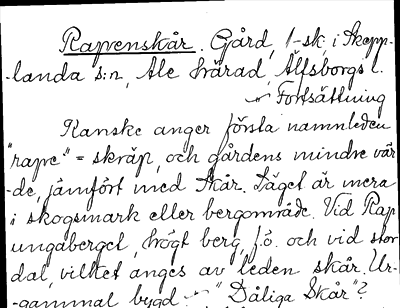 Rapenskår. Gård, 1 sk. i Skepp-
-landa s:n, Ale härad, Älfsborgs l.
Fortsättning
Kanske anger första namnleden
"rape" = skräp, och gårdens mindre vär-
-de, jämfört med Skår. Läget är mera
i skogsmark eller bergområde. Vid Rap
ungaberget, högt berg, f.ö. och vid stor
dal, vilket anges av leden skår. Ur-
-gammal bygd "Dåliga Skår"?